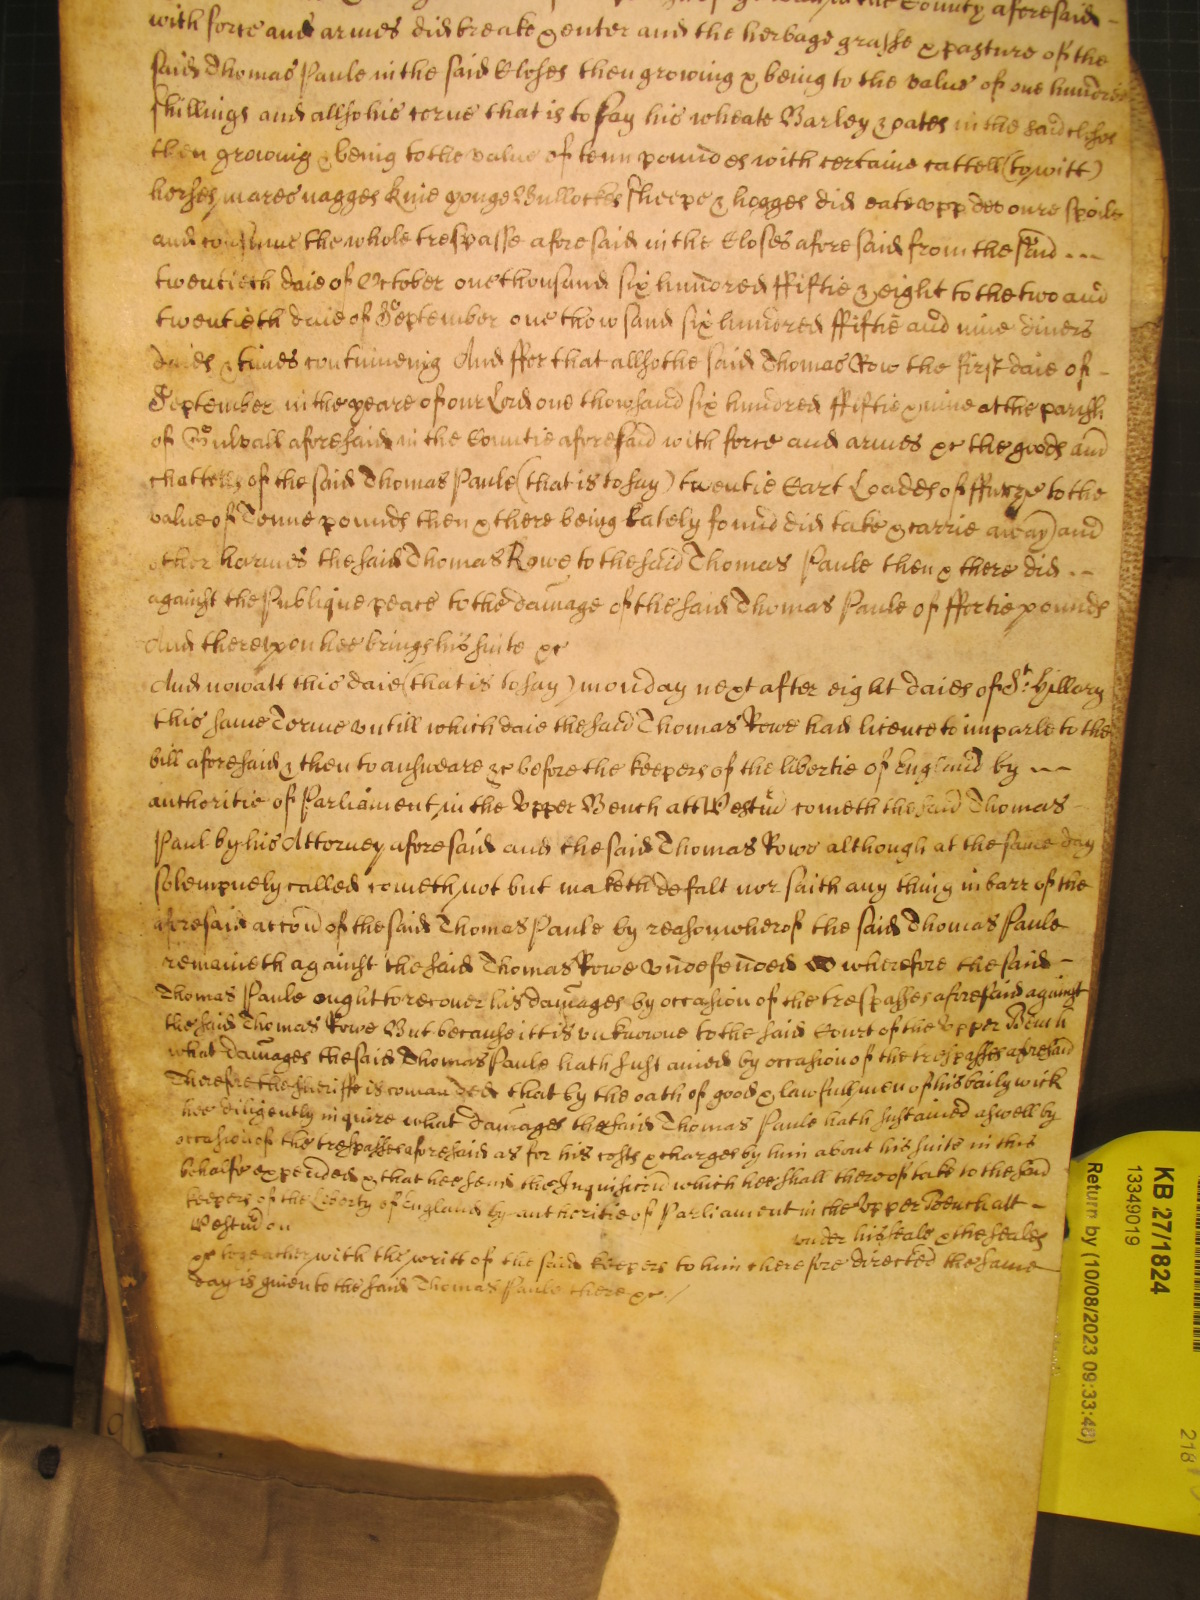 County aforesaid -
with force and armes did breake & enter and the herbage grasse & pasture of the
said Thomas Paule in the said Closes then growing & being to the value of one hundred
shillings and allso his corne that is to say his wheate Barley & oates in the said closes
then growing & being to the value of tenn pounds with certaine cattell (to witt)
horses mares nagges kine yonge Bullockes sheepe & hogges did eate upp devoure spoile
and consume the whole trespasse aforesaid in the Closes aforesaid from the said ---
twentieth daie of October one thousand six hundred ffiftie & eight to the two and
twentieth daie of September one thowsand six hundred ffiftie and nine divers
daies & times continueing And ffor that allso the said Thomas Row the first daie of -
September in the yeare of our Lord one thowsand six hundred ffiftie & nine at the parish
of Gulvall aforesaid in the Countie aforesaid with force and armes &c the goods and
chattells of the said Thomas Paule (that is to say) twentie Cart Loades of ffurze to the
value of Tenne pounds then & there being lately found did take & carrie away and
other harmes the said Thomas Rowe to the said Thomas Paule then & there did --
against the Publique peace to the damage of the said Thomas Paule of ffortie pounds
And thereupon hee brings his suite &c
And now att this daie (that is to say) monday next after eight daies of St. Hillary
this same Terme untill which daie the said Thomas Rowe had licence to imparle to the
bill aforesaid & then to answeare &c before the keepers of the libertie of England by ---
authoritie of Parliament in the Upper Bench att Westm̄ cometh the said Thomas
Paul by his Attorney aforesaid and the said Thomas Rowe although at the same day
solempnely called cometh not but maketh defalt nor saith any thing in barr of the
aforesaid accōn of the said Thomas Paule by reason wherof the said Thomas Paule
remaineth against the said Thomas Rowe undefended wherefore the said -
Thomas Paule ought to recover his damages by occasion of the trespasses aforesaid against
the said Thomas Rowe But because itt is unknowne to the said Court of the Upper Bench
what damages the said Thomas Paule hath sustained by occasion of the trespasses aforesaid
Therefore the sheriffe is comanded that by the oath of good & lawfull men of his bailywick
hee diligently inquire what damages the said Thomas Paule hath sustained aswell by
occasion of the trespasses aforesaid as for his costs & charges by him about his suite in this
behalfe expended & that hee send the Inquisicōn which hee shall thereof take to the said
keepers of the Liberty of England by authoritie of Parliament in the Upper Bench att -
Westm̄ on under his seale & the seales
&c togeather with the writt of the said keepers to him therefore directed the same
day is given to the said Thomas Paule there &c /
KB 27/1824
13349019
Return by (10/08/2023 09:33:48)
218